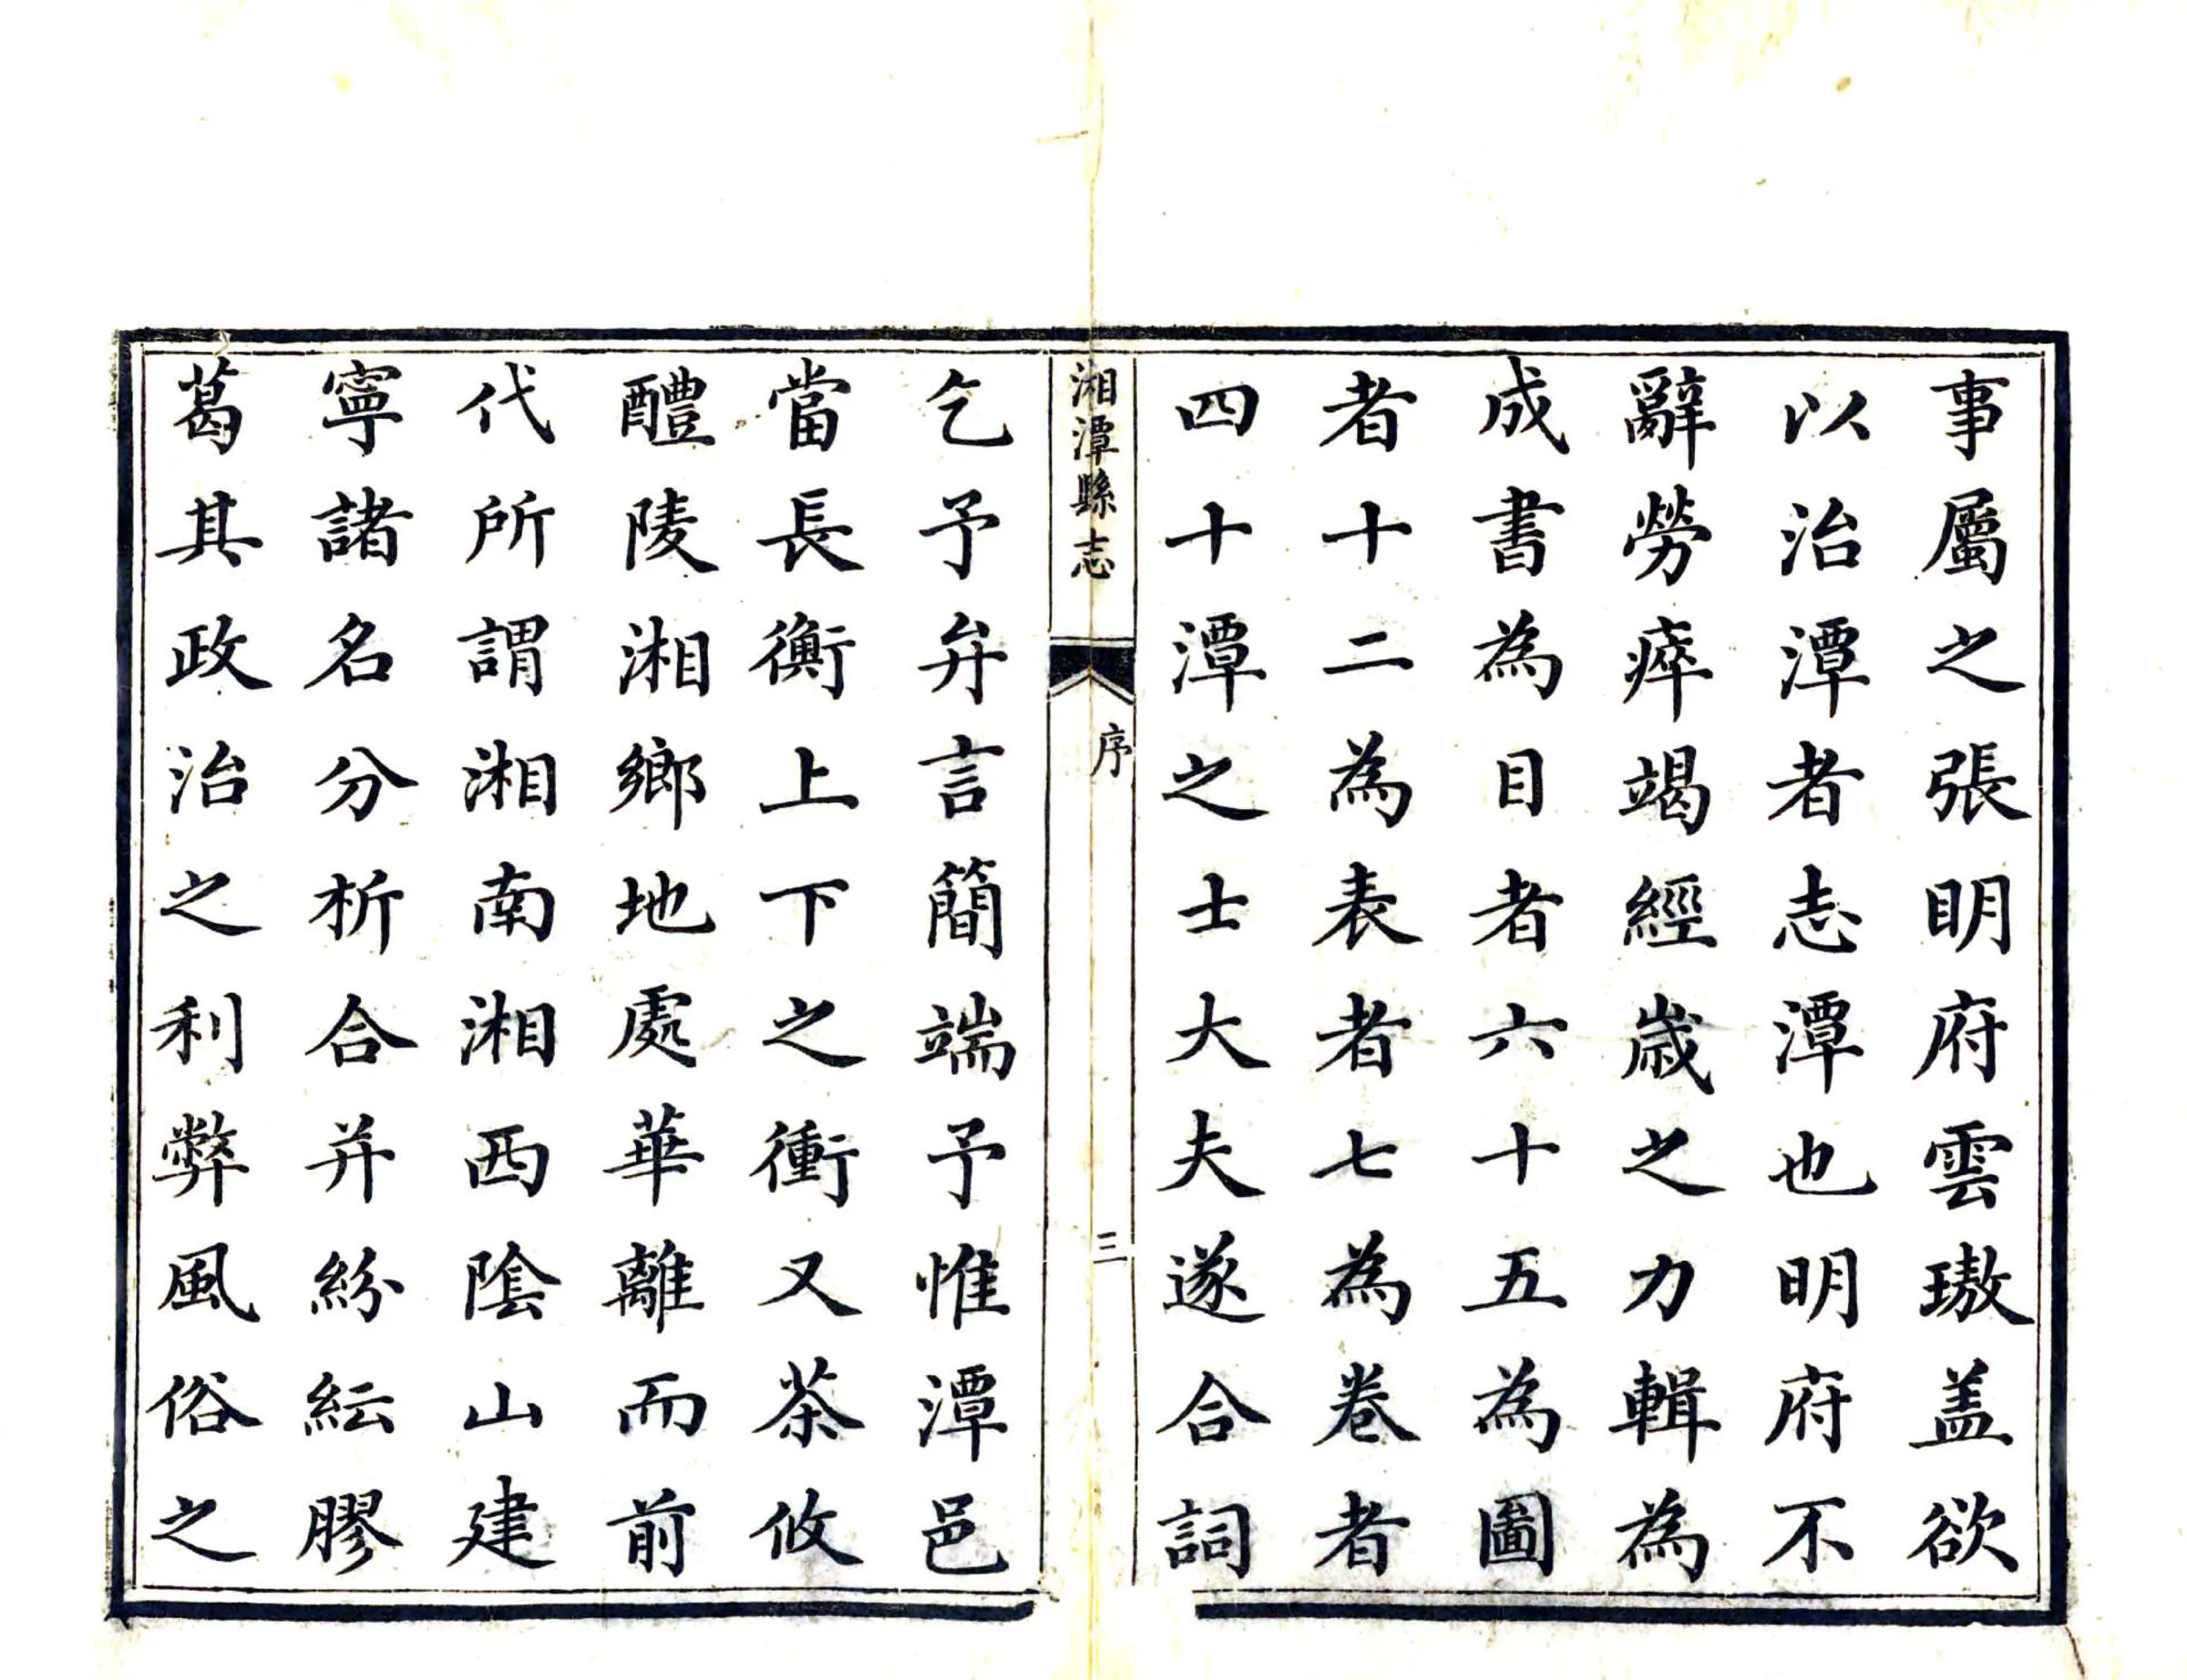 事屬之張明府雲璈盖欲
以治潭者志潭也明府不
辭勞瘁竭經歲之力輯為
成書為目者六十五為圖
者十二為表者七為卷者
四十潭之士大夫遂合詞
湘潭縣志
序
三
乞予弁言簡端予惟潭邑
當長衡上下之衝又茶攸
醴陵湘鄉地處華離而前
代所謂湘南湘西陰山建
寧諸名分析合并紛紜膠
葛其政治之利弊風俗之